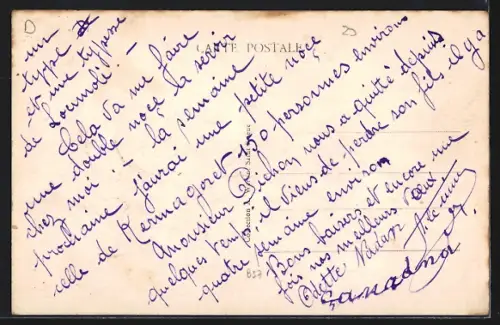 un
type
et une typesse
de Locmudi ! -
Cela va me faire
une double noce la serir
chez moi ! - la semaine
prochaine j'aurai une petite noce
celle de Kermagoret 150 personnes environs
Monsieur Pichon nous a quitté depuis
quelques temps, il viens de perdre son fils il y a
quatre semaine environ
Bons baisers et encore une
fois mes meilleurs vœux
Odette
CARTE POSTALE
D
B57